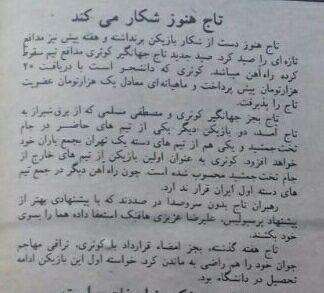 تاج هنوز شکار می کند
تاج هنوز دست از شکار بازیکن برنداشته و هفته پیش نیز مدافع
تازه‌ای را صید کرد. صید جدید تاج جهانگیر کوثری مدافع تیم سقوط
کرده راه‌آهن میباشد. کوثری که دانشجو است با دریافت ۲۰
هزارتومان پیش پرداخت و ماهیانه‌ای معادل یک هزارتومان عضویت
تاج را پذیرفت.
تاج بجز جهانگیر کوثری و مصطفی مسلمی که از برق شیراز به
تاج آمد، دو بازیکن دیگر یکی از تیم های حاضر در جام
تخت جمشید و یکی هم از تیم های دسته یک تهران بجمع یاران خود
خواهد افزود. کوثری به عنوان اولین بازیکن از تیم های خارج از
جام تخت جمشید محسوب شده است. چون راه آهن دیگر در جمع تیم
های دسته اول ایران قرار ندارد.
رهبران تاج بدون سروصدا در صددند که با پیشنهادی بهتر از
پیشنهاد پرسپولیس، علیرضا عزیزی هافبک استعفا داده هما را بسوی
خود بکشند.
تاج هفته گذشته، بجز امضاء قرارداد با کوثری، نراقی مهاجم
جوان خود را هم راضی به ماندن کرد. خواسته اول این بازیکن ادامه
تحصیل در دانشگاه بود.